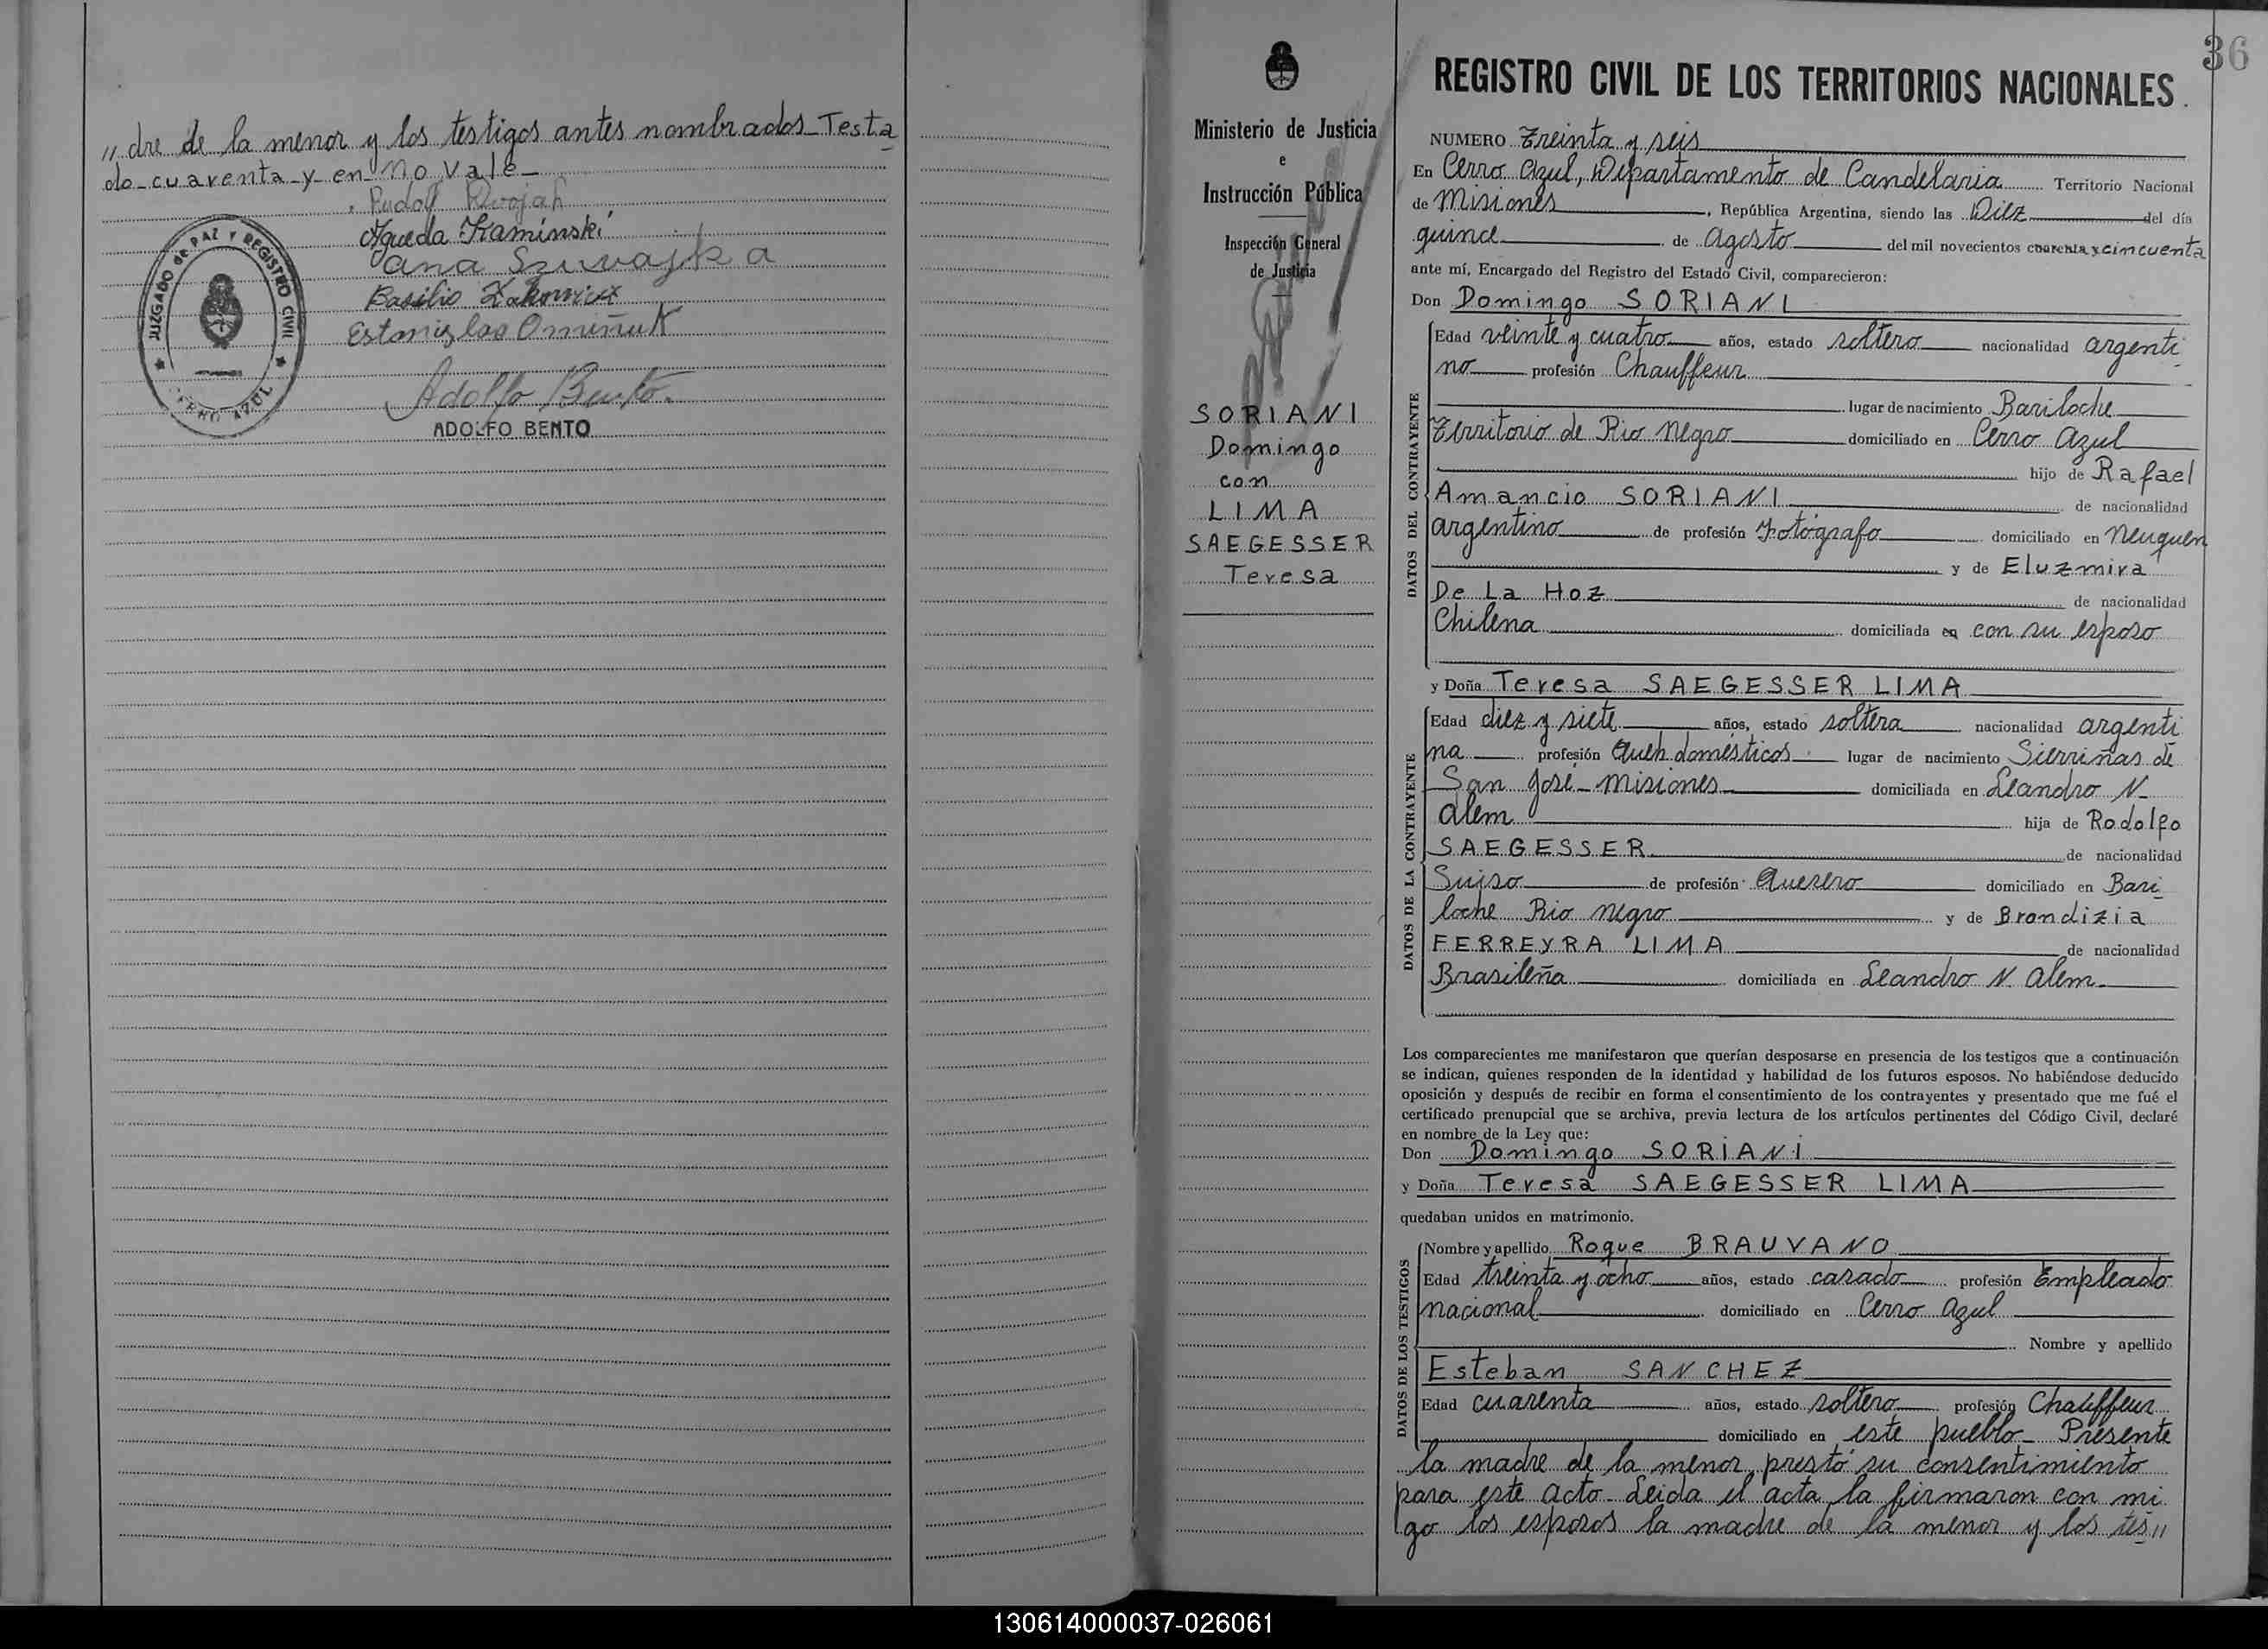 „dre de la menor y los testigos antes nombrados_Testa
do_cuarenta_y_en_no vale_
Rudolf
Agueda Kaminski
ana Szuwajka
Basilio
Estanislao Omiñuk
Adolfo Bento.
ADOLFO BENTO
JUZGADO de PAZ Y REGISTRO CIVIL
CERRO AZUL
36
Ministerio de Justicia
e
Instrucción Pública
Inspección General
de Justicia
SORIANI
Domingo
con
LIMA
SAEGESSER
Teresa
REGISTRO CIVIL DE LOS TERRITORIOS NACIONALES.
NUMERO Treinta y seis
En Cerro Azul, Departamento de Candelaria Territorio Nacional
de Misiones, República Argentina, siendo las Diez del día
quince de Agosto del mil novecientos cuarenta y cincuenta
ante mí, Encargado del Registro del Estado Civil, comparecieron:
Don Domingo SORIANI
DATOS DEL CONTRAYENTE
Edad veinte y cuatro años, estado soltero nacionalidad argenti
no profesión Chauffeur
lugar de nacimiento Bariloche
Territorio de Rio Negro domiciliado en Cerro Azul
hijo de Rafael
Amancio SORIANI de nacionalidad
argentino de profesión Fotógrafo domiciliado en Neuquen
y de Eluzmira
De La Hoz de nacionalidad
Chilena domiciliada en con su esposo
y Doña Teresa SAEGESSER LIMA
DATOS DE LA CONTRAYENTE
Edad diez y siete años, estado soltera nacionalidad argenti
na profesión Queh. domésticos lugar de nacimiento Sierriñas de
San José_Misiones domiciliada en Leandro N_
Alem hija de Rodolfo
SAEGESSER de nacionalidad
Suiso de profesión Quesero domiciliado en Bari_
loche Rio Negro y de Brondizia
FERREYRA LIMA de nacionalidad
Brasileña domiciliada en Leandro N. Alem
Los comparecientes me manifestaron que querían desposarse en presencia de los testigos que a continuación
se indican, quienes responden de la identidad y habilidad de los futuros esposos. No habiéndose deducido
oposición y después de recibir en forma el consentimiento de los contrayentes y presentado que me fué el
certificado prenupcial que se archiva, previa lectura de los artículos pertinentes del Código Civil, declaré
en nombre de la Ley que:
Don Domingo SORIANI
y Doña Teresa SAEGESSER LIMA
quedaban unidos en matrimonio.
DATOS DE LOS TESTIGOS
Nombre y apellido Roque BRAUVANO
Edad treinta y ocho años, estado casado profesión Empleado
nacional domiciliado en Cerro Azul
Nombre y apellido
Esteban SANCHEZ
Edad cuarenta años, estado soltero profesión Chauffeur
domiciliado en este pueblo_ Presente
la madre de la menor, prestó su consentimiento
para este acto_Leida el acta, la firmaron con mi
go los esposos la madre de la menor y los tes„
130614000037-026061